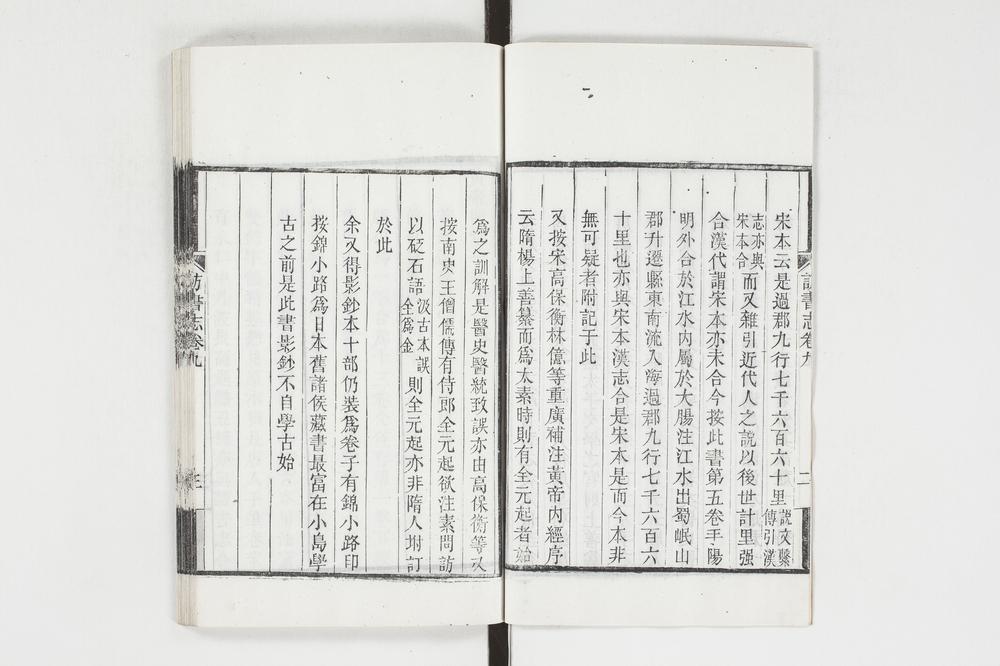 宋本云是過郡九行七千六百六十里說文繫傳引漢
志亦與宋本合而又雜引近代人之說以後世計里强
合漢代謂宋本亦未合今按此書第五卷手陽
明外合於江水內屬於大腸注江水出蜀岷山
郡升遷縣東南流入海過郡九行七千六百六
十里也亦與宋本漢志合是宋本是而今本非
無可疑者附記于此
又按宋高保衡林億等重廣補注黃帝內經序
云隋楊上善纂而爲太素時則有全元起者始
訪書志卷九
二
爲之訓解是醫史醫統致誤亦由高保衡等又
按南史王僧儒傳有侍郎全元起欲注素問訪
以砭石語汲古本誤全爲金則全元起亦非隋人坿訂
於此
余又得影鈔本十部仍裝爲卷子有錦小路印
按錦小路爲日本舊諸侯藏書最富在小島學
古之前是此書影鈔不自學古始
訪書志卷九
三